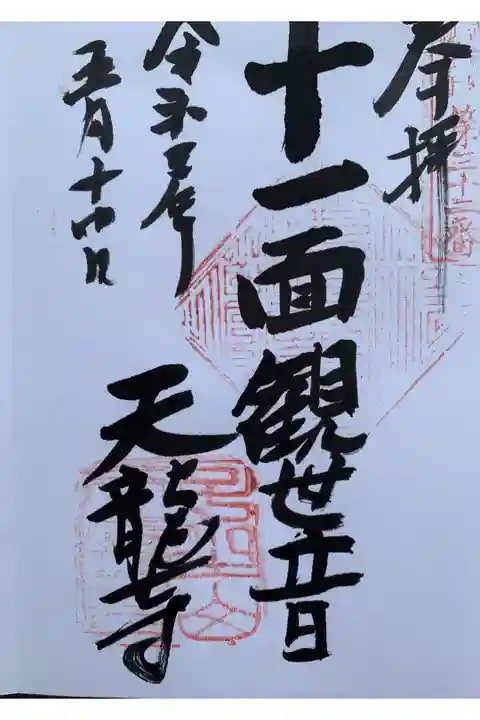 奉拝
第三十三番
十一面観世音
天龍寺
令和五年
五月十四日